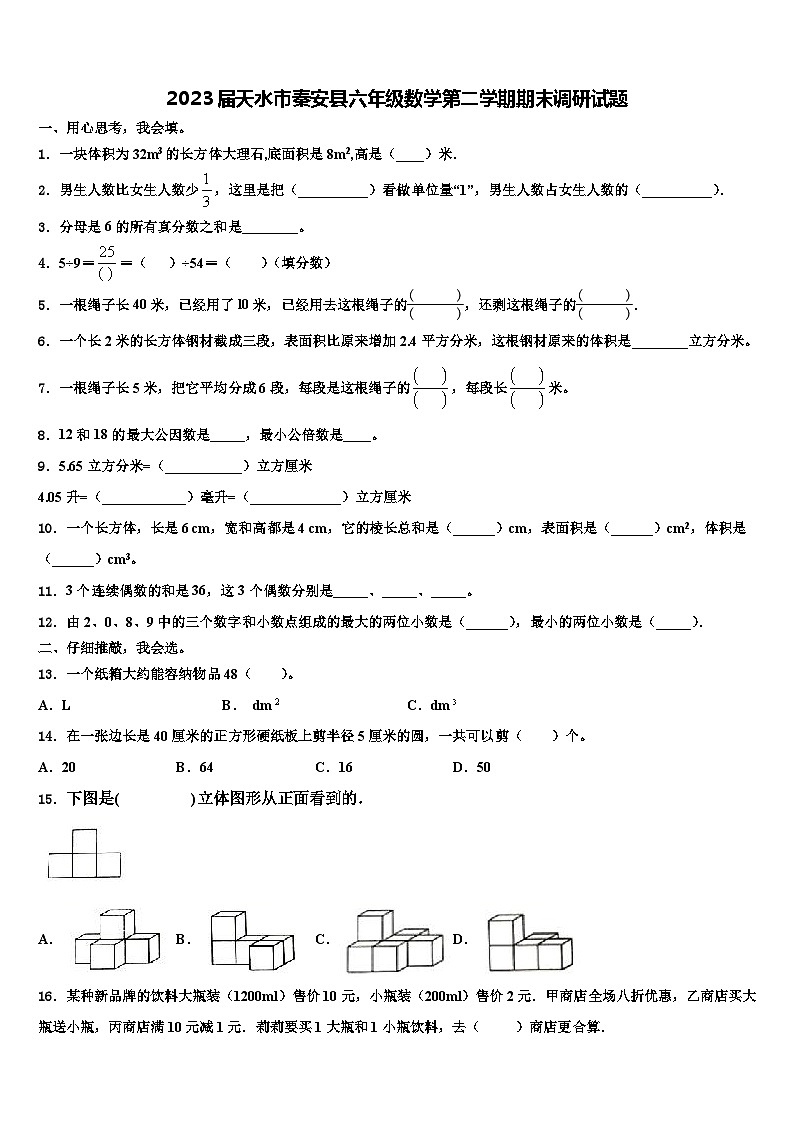 2023届天水市秦安县六年级数学第二学期期末调研试题
一、用心思考，我会填。
1．一块体积为32m³的长方体大理石,底面积是8m²,高是（____）米.
2．男生人数比女生人数少1/3，这里是把（__________）看做单位量“1”，男生人数占女生人数的（__________）.
3．分母是6的所有真分数之和是________。
4．5÷9＝25/( )＝（　）÷54＝（　　）（填分数）
5．一根绳子长40米，已经用了l0米，已经用去这根绳子的(　)/(　)，还剩这根绳子的(　)/(　).
6．一个长2米的长方体钢材截成三段，表面积比原来增加2.4平方分米，这根钢材原来的体积是________立方分米。
7．一根绳子长5米，把它平均分成6段，每段是这根绳子的(　)/(　)，每段长(　)/(　)米。
8．12和18的最大公因数是_____，最小公倍数是____。
9．5.65立方分米=（___________）立方厘米
4.05升=（____________）毫升=（_____________）立方厘米
10．一个长方体，长是6 cm，宽和高都是4 cm，它的棱长总和是（______）cm，表面积是（______）cm²，体积是
（______）cm³。
11．3个连续偶数的和是36，这3个偶数分别是_____、_____、_____。
12．由2、0、8、9中的三个数字和小数点组成的最大的两位小数是（______），最小的两位小数是（_____）.
二、仔细推敲，我会选。
13．一个纸箱大约能容纳物品48（　　）。
A．L　B． dm²　C．dm³
14．在一张边长是40厘米的正方形硬纸板上剪半径5厘米的圆，一共可以剪（　　）个。
A．20　B．64　C．16　D．50
15．下图是(　　　)立体图形从正面看到的．
A．　B．　C．　D．
16．某种新品牌的饮料大瓶装（1200ml）售价10元，小瓶装（200ml）售价2元．甲商店全场八折优惠，乙商店买大
瓶送小瓶，丙商店满10元减1元．莉莉要买1大瓶和1小瓶饮料，去（　　）商店更合算．